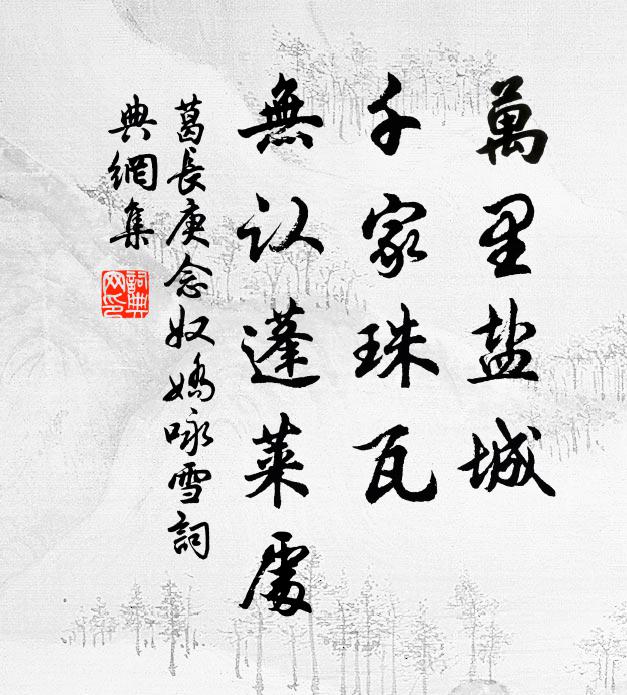 萬里盐城
千家珠瓦
無认蓬莱處
葛長庚念奴嬌咏雪詞
典網集
詞典网印